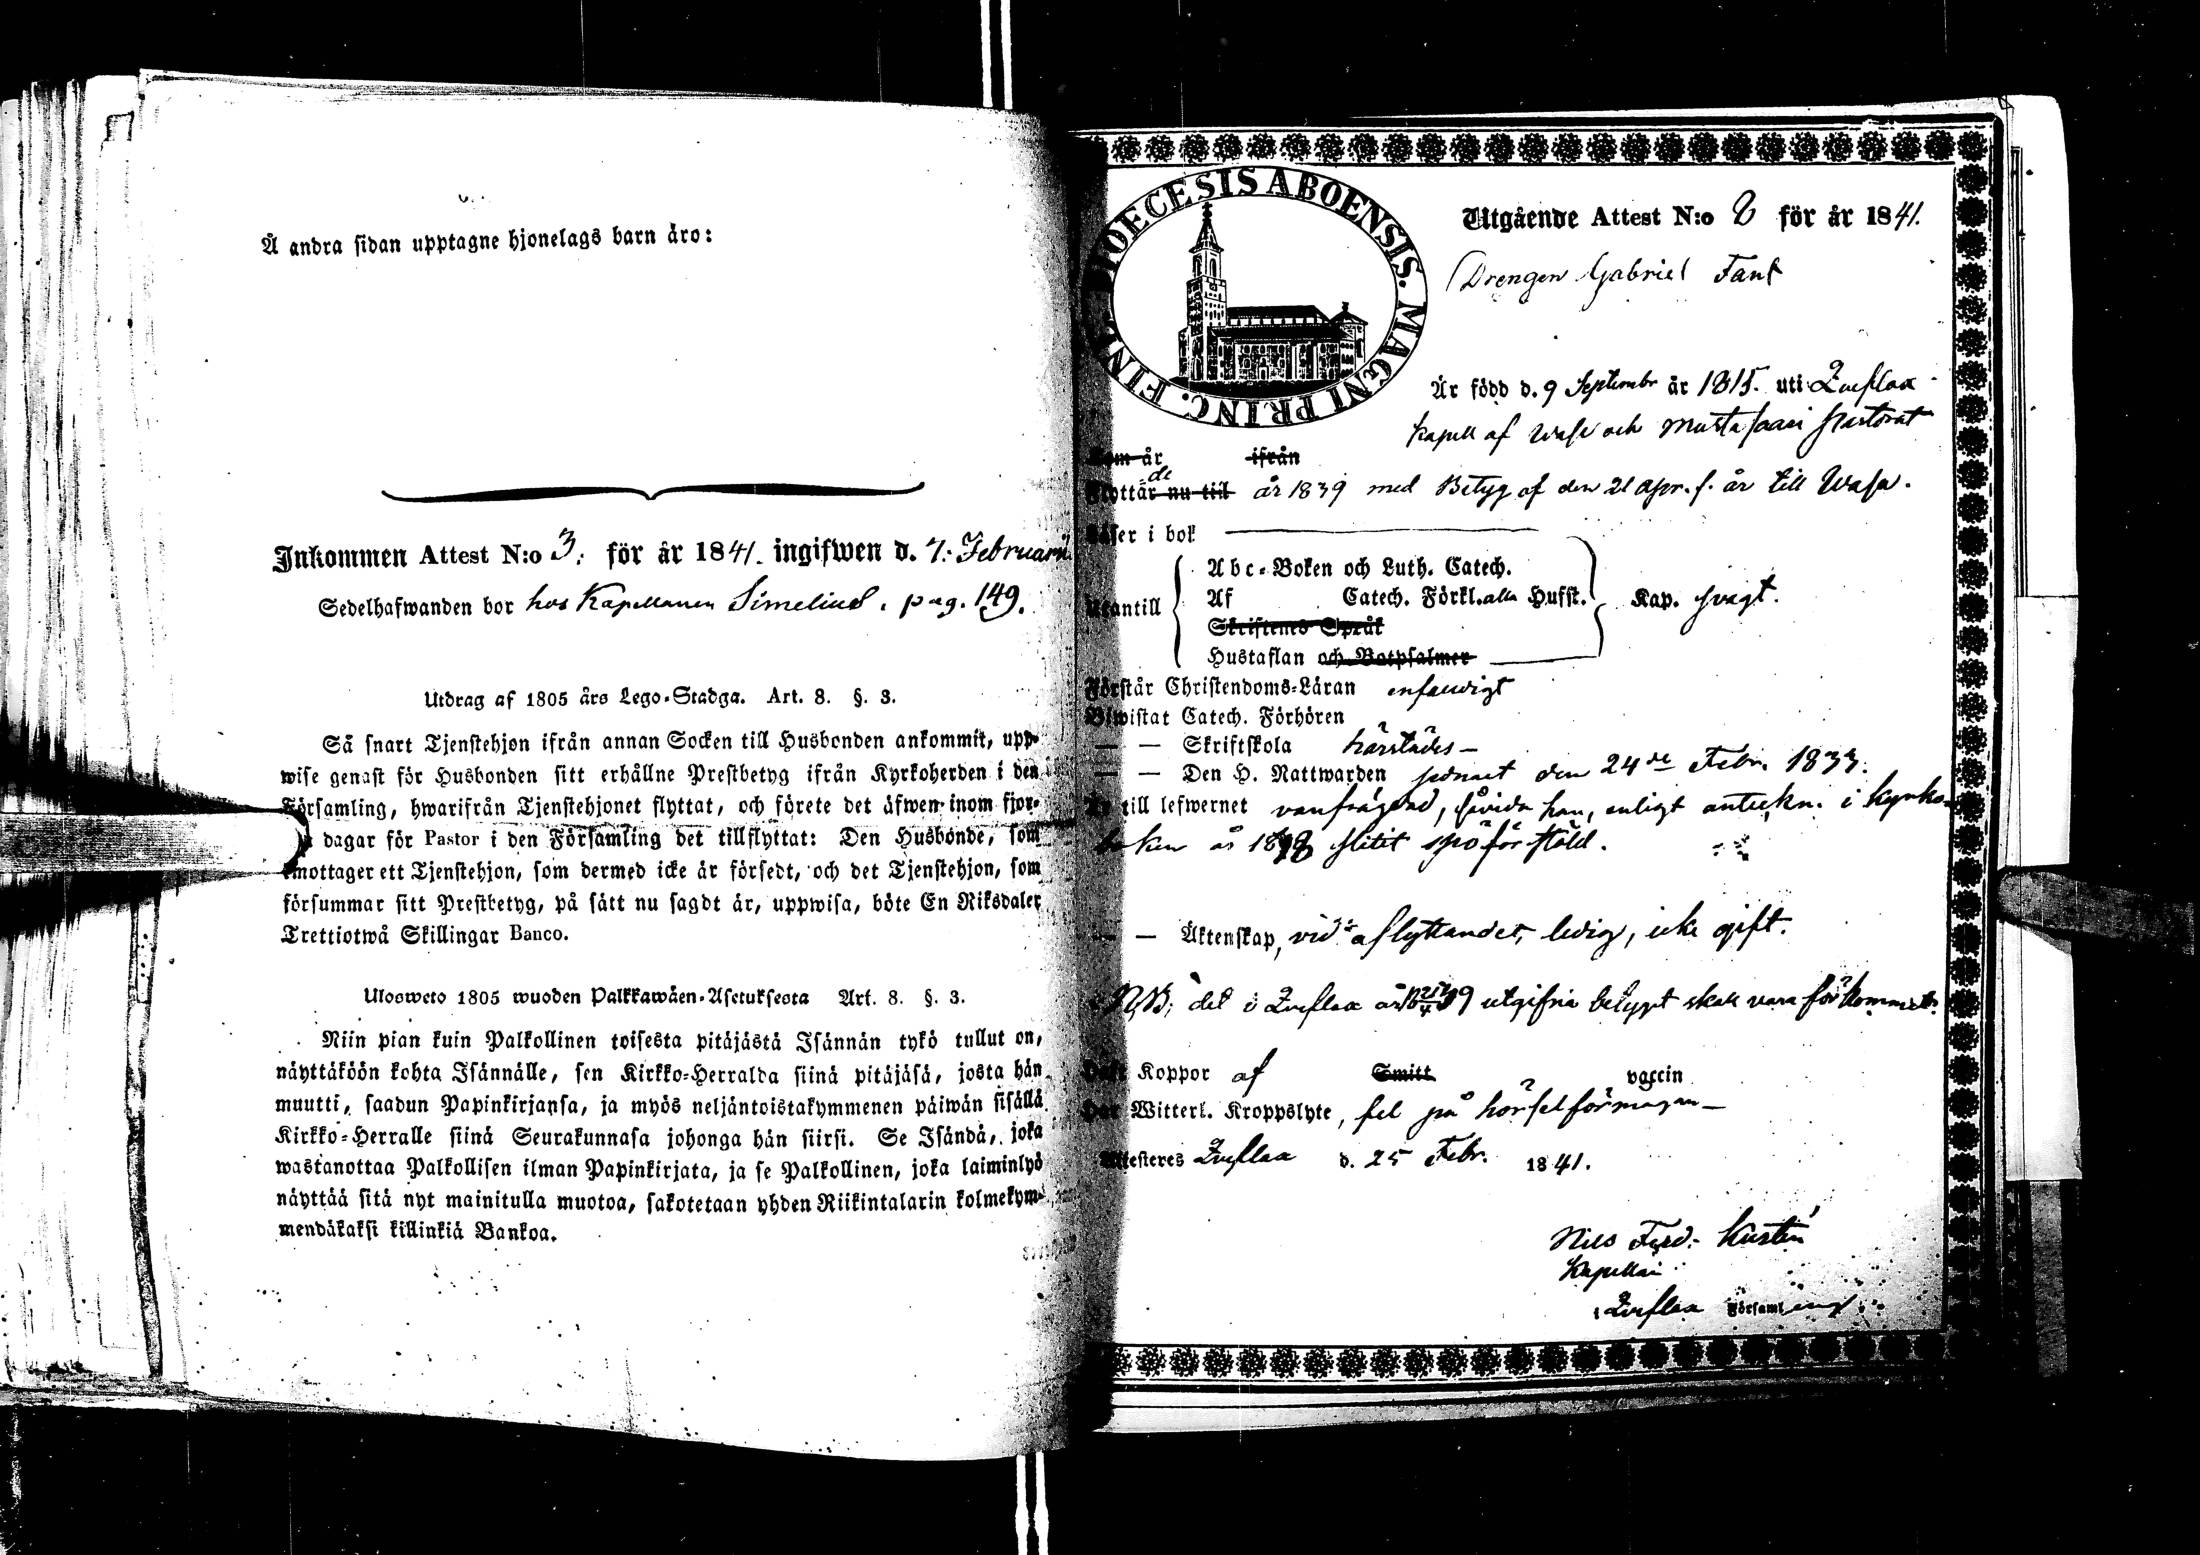 Å andra sidan upptagne hjonelags barn äro:
Inkommen Attest N:o 3. för år 1841. ingifwen d. 7. Februarii
Sedelhafwanden bor hos Kapellanen Simelius, pag. 149.
Utdrag af 1805 års Lego-Stadga. Art. 8. §. 3.
Så snart Tjenstehjon ifrån annan Socken till Husbonden ankommit, upp-
wise genast för Husbonden sitt erhållne Prestbetyg ifrån Kyrkoherden i den
Församling, hwarifrån Tjenstehjonet flyttat, och förete det äfwen inom fjor-
dagar för Pastor i den Församling det tillflyttat: Den Husbonde, som
emottager ett Tjenstehjon, som dermed icke är försedt, och det Tjenstehjon, som
försummar sitt Prestbetyg, på sätt nu sagdt är, uppwisa, böte En Riksdaler
Trettiotwå Skillingar Banco.
Ulosweto 1805 wuoden Palkkawäen-Asetuksesta Art. 8. §. 3.
Niin pian kuin Palkollinen toisesta pitäjästä Isännän tykö tullut on,
näyttäköön kohta Isännälle, sen Kirkko-Herralda siinä pitäjäsä, josta hän
muutti, saadun Papinkirjansa, ja myös neljäntoistakymmenen päiwän sisällä
Kirkko-Herralle siinä Seurakunnasa johonga hän siirsi. Se Isändä, joka
wastanottaa Palkollisen ilman Papinkirjata, ja se Palkollinen, joka laiminlyö
näyttää sitä nyt mainitulla muotoa, sakotetaan yhden Riikintalarin kolmekym-
mendäkaksi killinkiä Bankoa.
DIOECESIS ABOENSIS. MAGNI PRINC. FINL.
Utgående Attest N:o 8 för år 1841.
Drengen Gabriel Fant
Är född d. 9 Septembr år 1815. uti Qveflax
Kapell af Wasa och Mustasaari Pastorat
Kom år ifrån
Flyttär nu til de år 1839 med Betyg af den 21 Apr. s. år till Wasa.
Läser i bok
Utantill
Abc-Boken och Luth. Catech.
Af Catech. Förkl. alla Hufst.
Skriftenes Språk
Hustaflan och Botpsalmer
Kap. svagt.
Förstår Christendoms-Läran enfaldigt
Biwistat Catech. Förhören
— — Skriftskola härstädes —
— — Den H. Nattwarden sednast den 24de Febr. 1833.
Är till lefwernet vanfrägdad, såvida han, enligt anteckn. i Kyrko-
boken år slitit spö för stöld.
— — Äktenskap, vid aflyttandet, ledig, icke gift.
NB; det i Qveflax år utgifna betyget skall vara förkommet.
Haft Koppor af Smitt vaccin
Har Witterl. Kroppslyte, fel på hörselförmågan —
Attesteres Qveflax d. 25 Febr. 1841.
Nils Ferd. Kustén
Kapellan
i Qveflax Församling